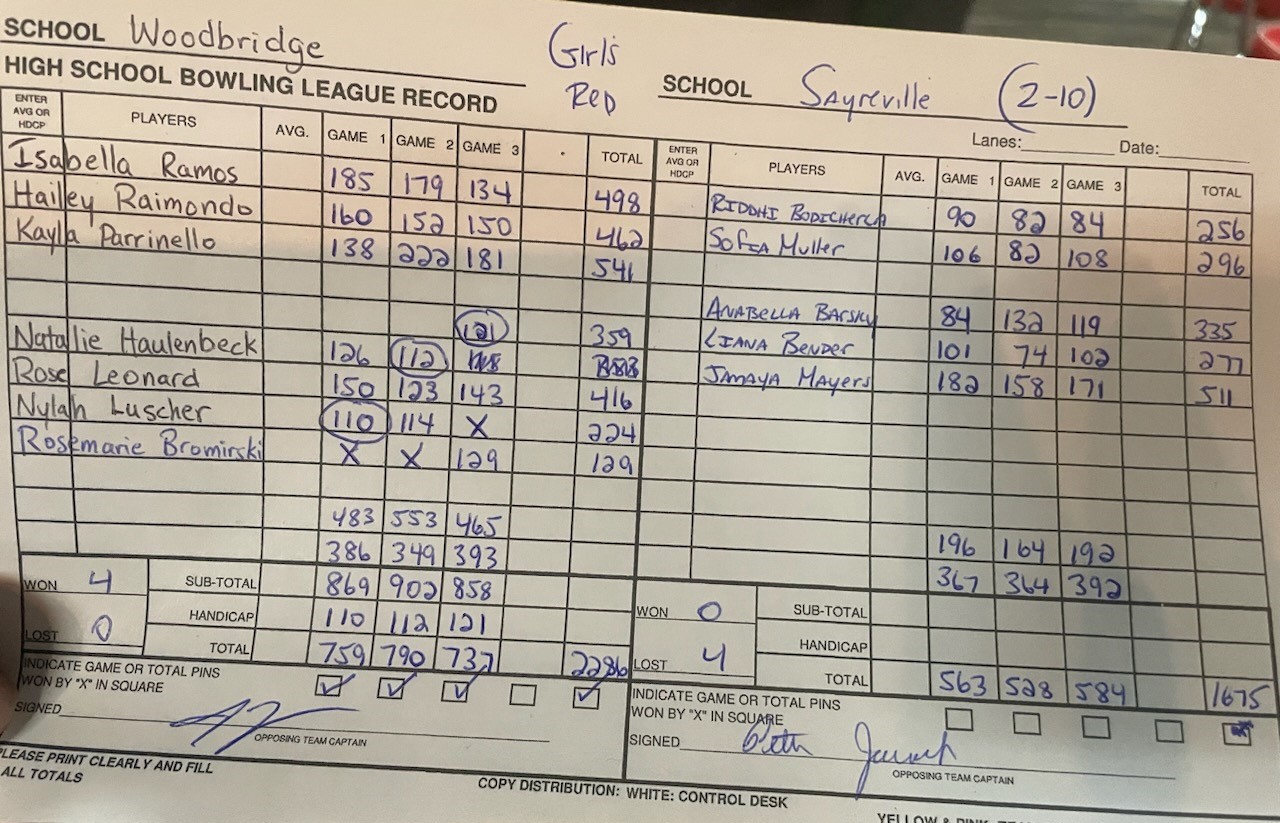 SCHOOL Woodbridge
Girl's
Red
SCHOOL Sayreville (2-10)
HIGH SCHOOL BOWLING LEAGUE RECORD
Lanes: Date:
ENTER AVG OR HDCP PLAYERS AVG. GAME 1 GAME 2 GAME 3 TOTAL
Isabella Ramos 185 179 134 498
Hailey Raimondo 160 152 150 462
Kayla Parrinello 138 222 181 541
121 359
Natalie Haulenbeck 126 112
Rose Leonard 150 123 143 416
Nylah Luscher 110 114 X 224
Rosemarie Bromirski X X 129 129
483 553 465
386 349 393
WON 4 SUB-TOTAL 869 902 858
HANDICAP 110 112 121
LOST 0 TOTAL 759 790 737 2286
INDICATE GAME OR TOTAL PINS
WON BY "X" IN SQUARE
SIGNED
OPPOSING TEAM CAPTAIN
PLEASE PRINT CLEARLY AND FILL
ALL TOTALS
ENTER AVG OR HDCP PLAYERS AVG. GAME 1 GAME 2 GAME 3 TOTAL
Riddhi Bodicherla 90 82 84 256
Sofia Muller 106 82 108 296
Anabella Barsky 84 132 119 335
Liana Bender 101 74 102 277
Jamaya Mayers 182 158 171 511
196 164 192
367 364 392
WON 0 SUB-TOTAL
HANDICAP
LOST 4 TOTAL 563 528 584 1675
INDICATE GAME OR TOTAL PINS
WON BY "X" IN SQUARE
SIGNED
OPPOSING TEAM CAPTAIN
COPY DISTRIBUTION: WHITE: CONTROL DESK
YELLOW & PINK